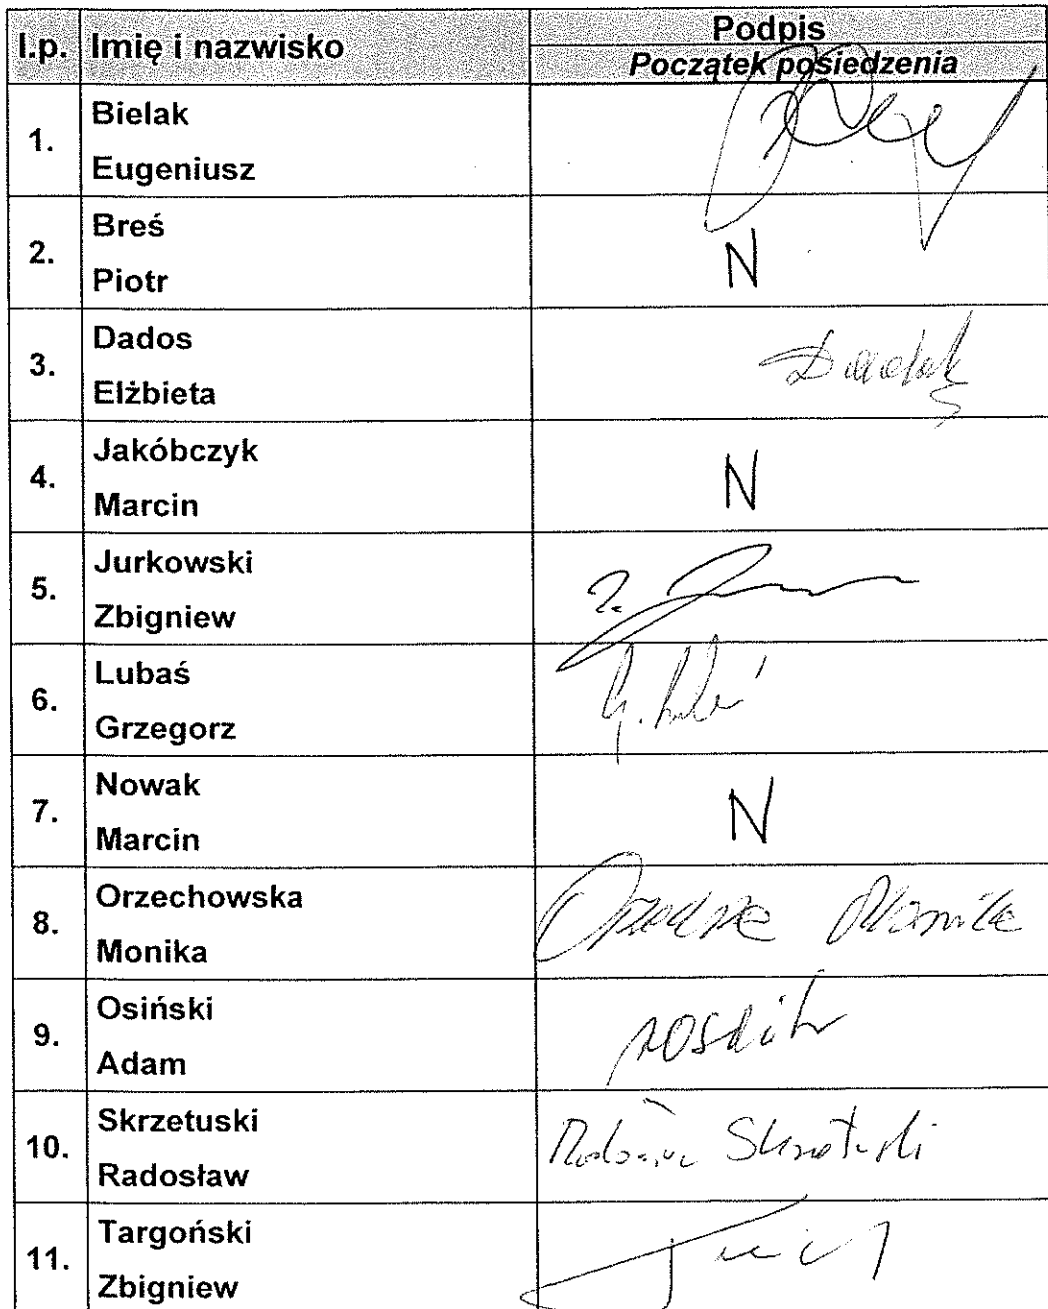 l.p. Imię i nazwisko Podpis
Początek posiedzenia
1. Bielak
Eugeniusz
2. Breś
Piotr
N
3. Dados
Elżbieta
4. Jakóbczyk
Marcin
N
5. Jurkowski
Zbigniew
6. Lubaś
Grzegorz
7. Nowak
Marcin
N
8. Orzechowska
Monika
9. Osiński
Adam
10. Skrzetuski
Radosław
11. Targoński
Zbigniew